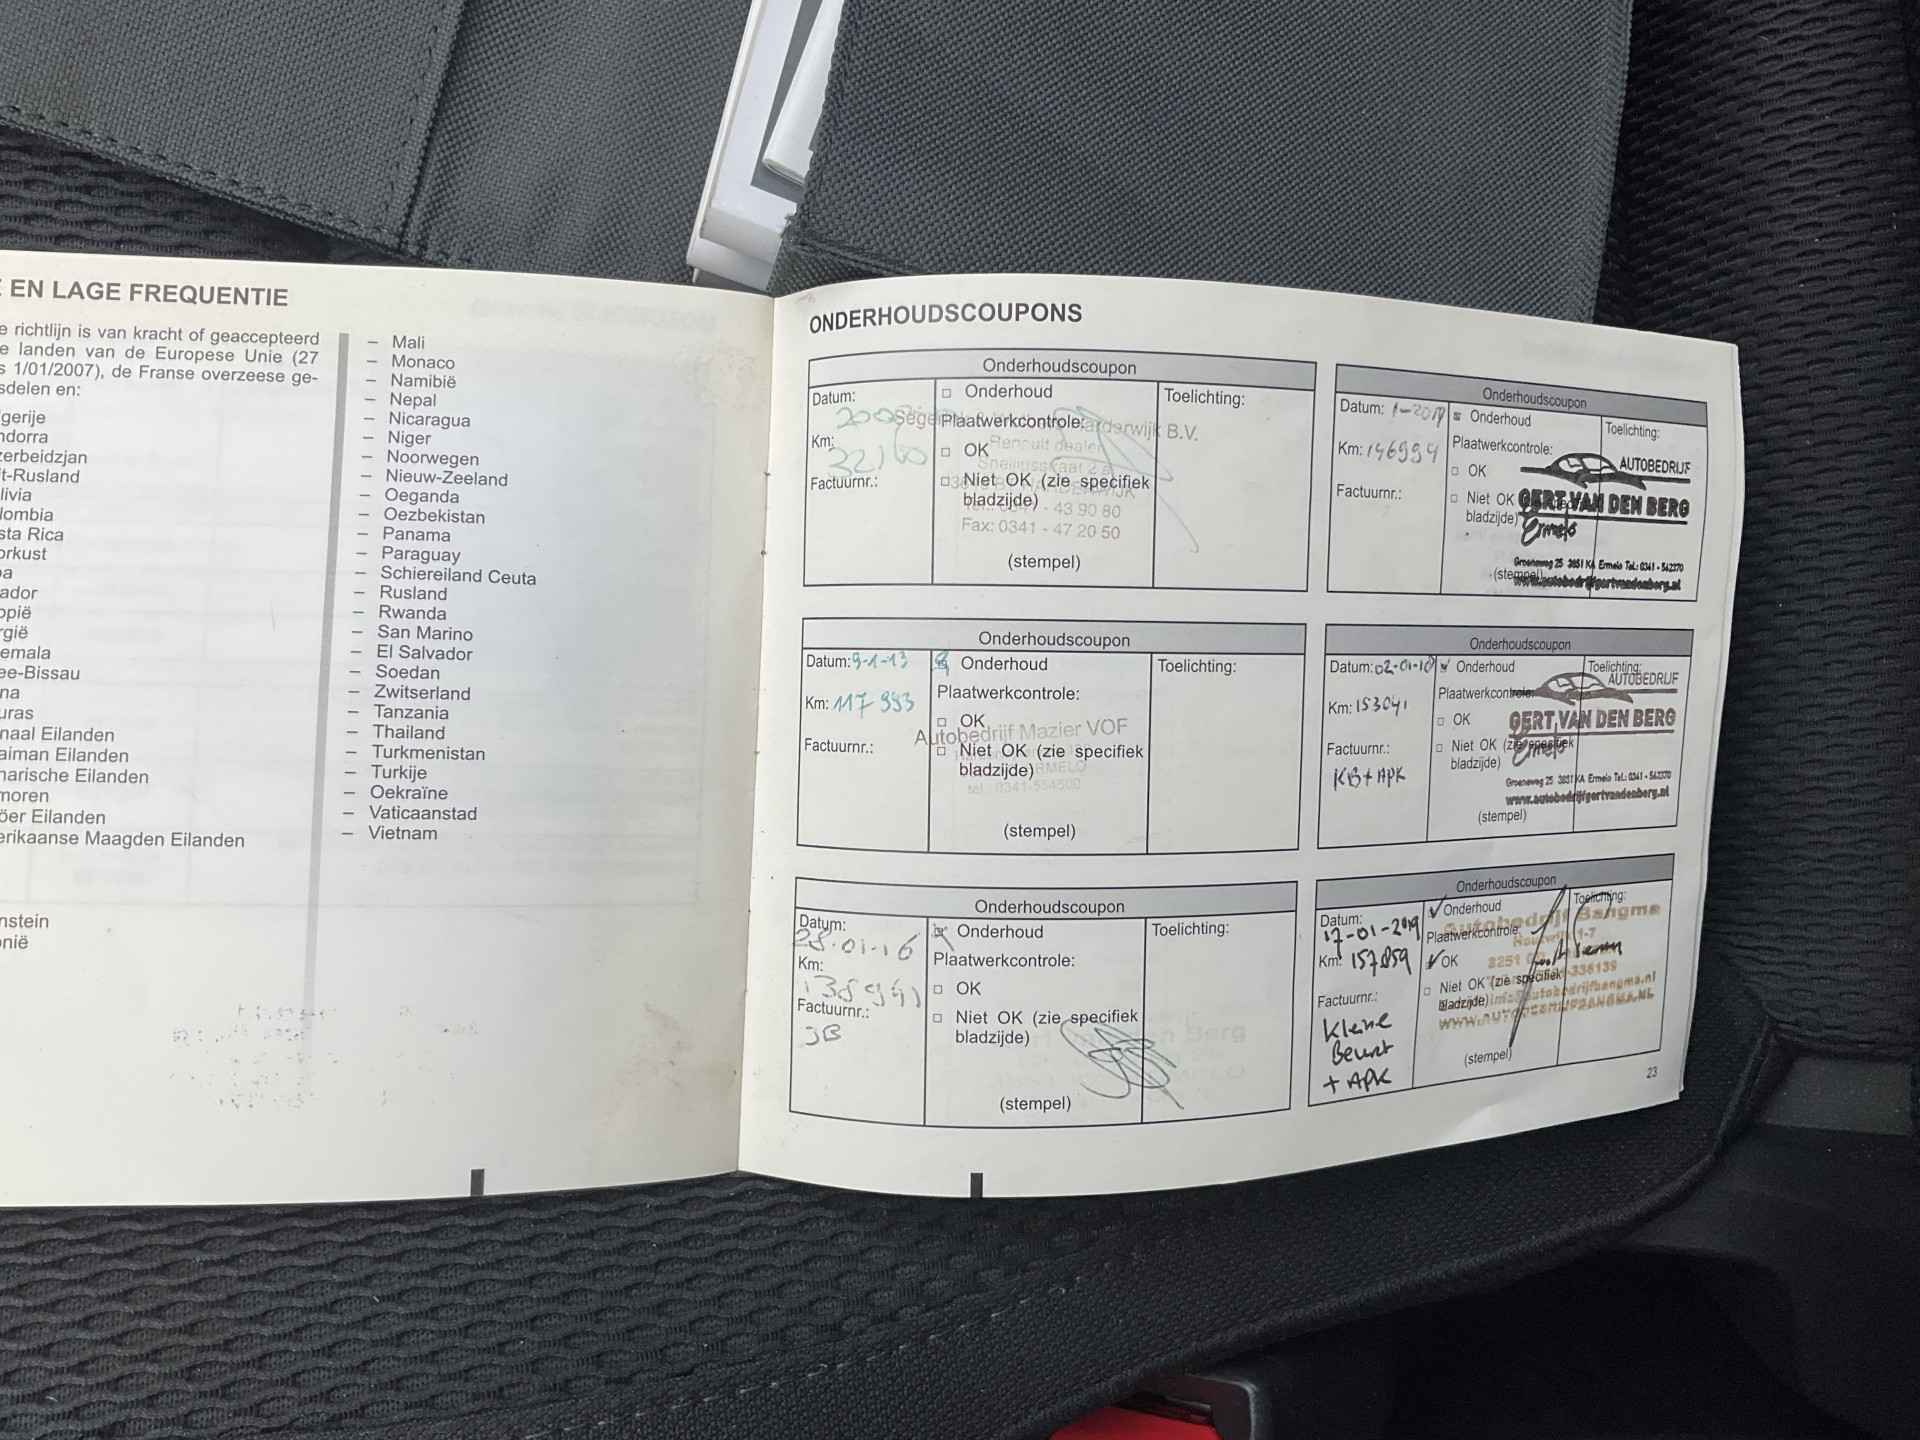 EN LAGE FREQUENTIE
richtlijn is van kracht of geaccepteerd
landen van de Europese Unie (27
1/01/2007), de Franse overzeese ge-
sdelen en:
gerije
ndorra
zerbeidzjan
it-Rusland
livia
lombia
sta Rica
orkust
ba
ador
opië
rgië
temala
ee-Bissau
na
uras
naal Eilanden
aiman Eilanden
narische Eilanden
moren
öer Eilanden
erikaanse Maagden Eilanden
nstein
onië
– Mali
– Monaco
– Namibië
– Nepal
– Nicaragua
– Niger
– Noorwegen
– Nieuw-Zeeland
– Oeganda
– Oezbekistan
– Panama
– Paraguay
– Schiereiland Ceuta
– Rusland
– Rwanda
– San Marino
– El Salvador
– Soedan
– Zwitserland
– Tanzania
– Thailand
– Turkmenistan
– Turkije
– Oekraïne
– Vaticaanstad
– Vietnam
ONDERHOUDSCOUPONS
Onderhoudscoupon
Datum:
Km:
Factuurnr.:
Onderhoud
Plaatwerkcontrole:
OK
Niet OK (zie specifiek
bladzijde)
(stempel)
Toelichting:
B.V.
Renault dealer
- 43 90 80
Fax: 0341 - 47 20 50
Onderhoudscoupon
Datum: 9-1-13
Km: 117 993
Factuurnr.:
Onderhoud
Plaatwerkcontrole:
OK
Niet OK (zie specifiek
bladzijde)
(stempel)
Toelichting:
Autobedrijf Mazier VOF
ERMELO
tel.: 0341-554500
Onderhoudscoupon
Datum:
28-01-16
Km:
138941
Factuurnr.:
JB
Onderhoud
Plaatwerkcontrole:
OK
Niet OK (zie specifiek
bladzijde)
(stempel)
Toelichting:
Onderhoudscoupon
Datum: 1-2017
Km: 146994
Factuurnr.:
Onderhoud
Plaatwerkcontrole:
OK
Niet OK
bladzijde)
(stempel)
Toelichting:
AUTOBEDRIJF
GERT VAN DEN BERG
Ermelo
Groeneweg 25 3851 KA Ermelo Tel.: 0341 - 562370
www.autobedrijfgertvandenberg.nl
Onderhoudscoupon
Datum: 02-01-18
Km: 153041
Factuurnr.:
KB + APK
Onderhoud
Plaatwerkcontrole:
OK
Niet OK (zie specifiek
bladzijde)
(stempel)
Toelichting:
AUTOBEDRIJF
GERT VAN DEN BERG
Ermelo
Groeneweg 25 3851 KA Ermelo Tel.: 0341 - 562370
www.autobedrijfgertvandenberg.nl
Onderhoudscoupon
Datum:
17-01-2019
Km: 157859
Factuurnr.:
Kleine
Beurt
+ APK
Onderhoud
Plaatwerkcontrole:
OK
Niet OK (zie specifiek
bladzijde)
(stempel)
Toelichting:
Autobedrijf Bangma
-336139
info@autobedrijfbangma.nl
www.AUTOBEDRIJFBANGMA.NL
23